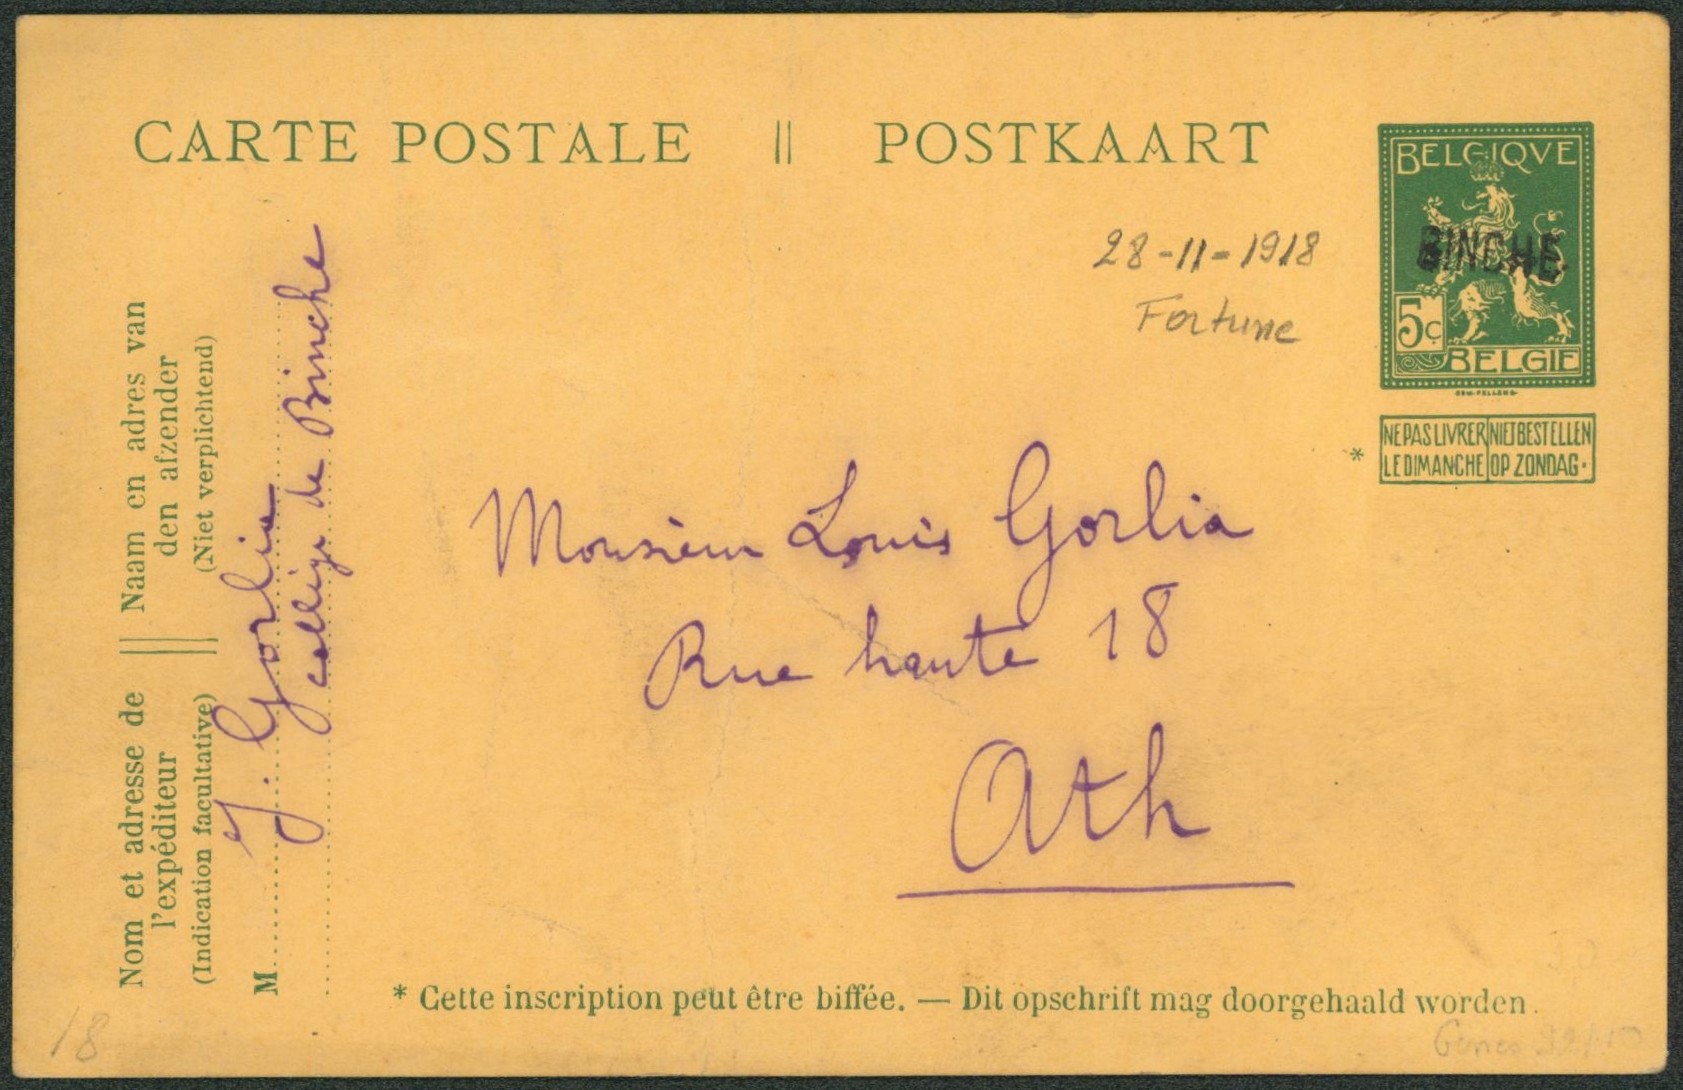 CARTE POSTALE || POSTKAART
BELGIQVE
BINCHE
5c
BELGIE
28-11-1918
Fortune
NE PAS LIVRER NIET BESTELLEN
* LE DIMANCHE OP ZONDAG.
Nom et adresse de || Naam en adres van
l'expéditeur den afzender
(Indication facultative) (Niet verplichtend)
M
J. Gorlia
collège de Binche
Monsieur Louis Gorlia
Rue haute 18
Ath
* Cette inscription peut être biffée. — Dit opschrift mag doorgehaald worden.
18